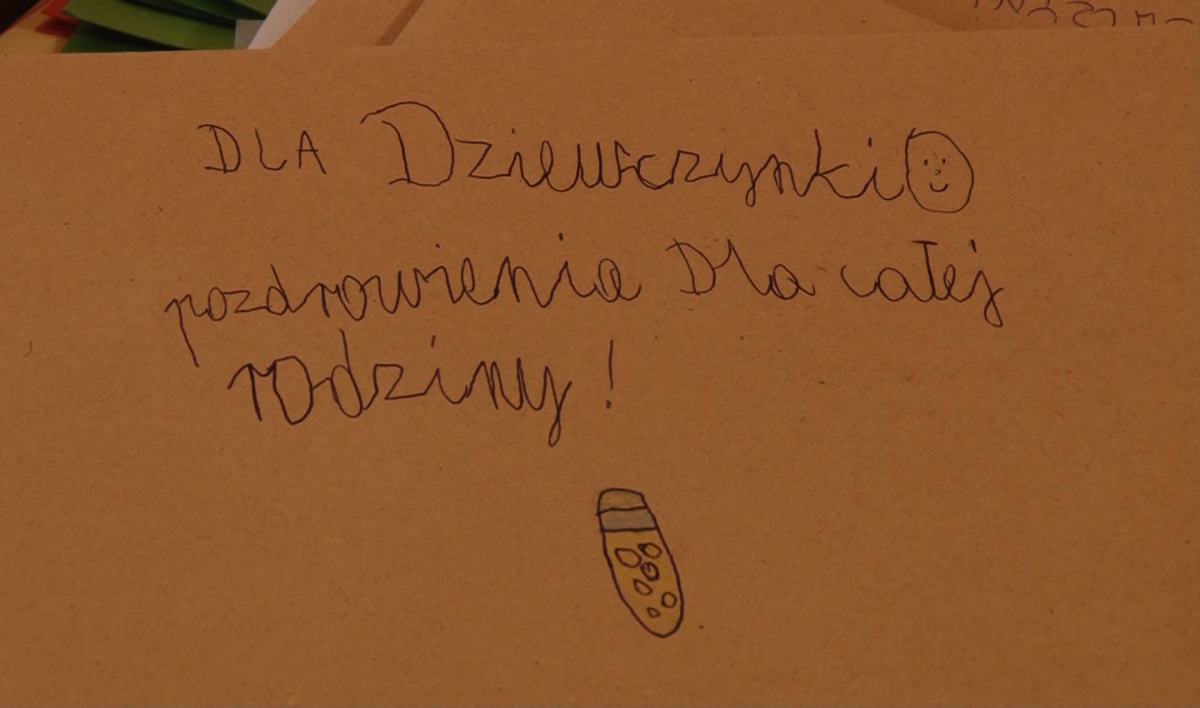 DLA Dziewczynki
pozdrowienia Dla całej
rodziny!